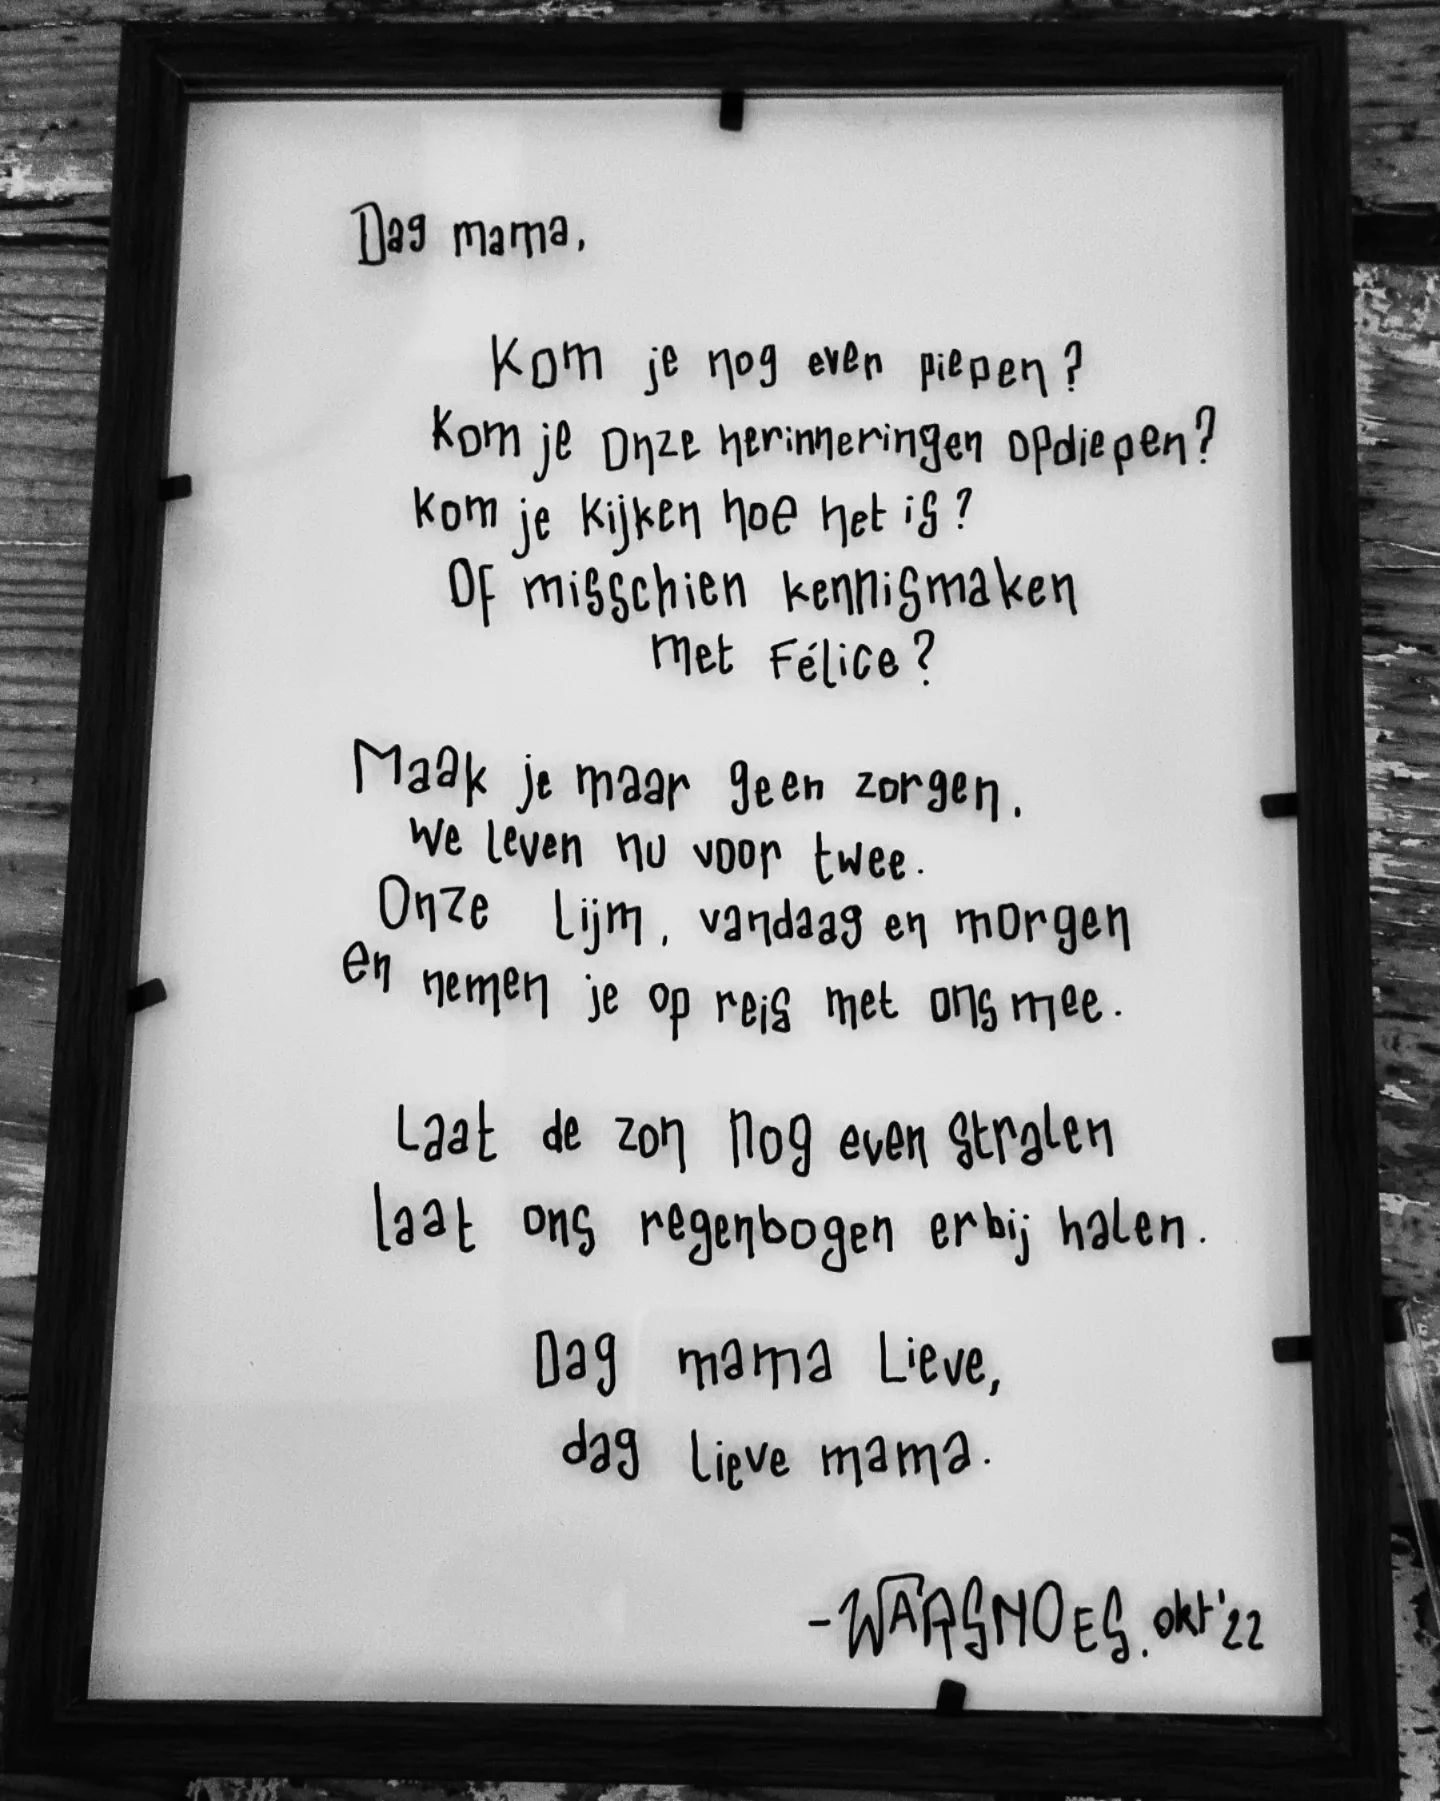 Dag mama,
Kom je nog even piepen?
Kom je onze herinneringen opdiepen?
Kom je kijken hoe het is?
Of misschien kennismaken
met Félice?
Maak je maar geen zorgen,
We leven nu voor twee.
Onze Lijm, vandaag en morgen
en nemen je op reis met ons mee.
Laat de zon nog even stralen
laat ons regenbogen erbij halen.
Dag mama Lieve,
dag lieve mama.
-WARSNOES. okt'22